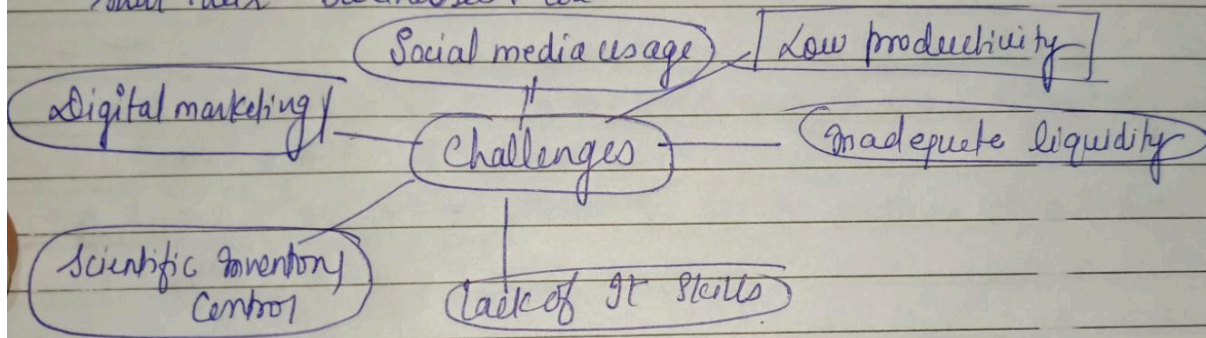 businesses.
Social media usage
Low productivity
Digital marketing
Challenges
Inadequate liquidity
Scientific Inventory
Control
Lack of It Skills